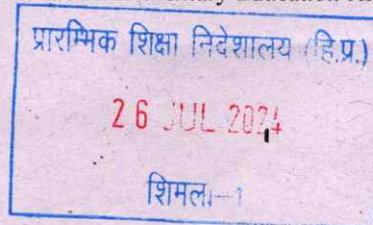 प्रारम्भिक शिक्षा निदेशालय (हि.प्र.)
26 JUL 2024
शिमला-1